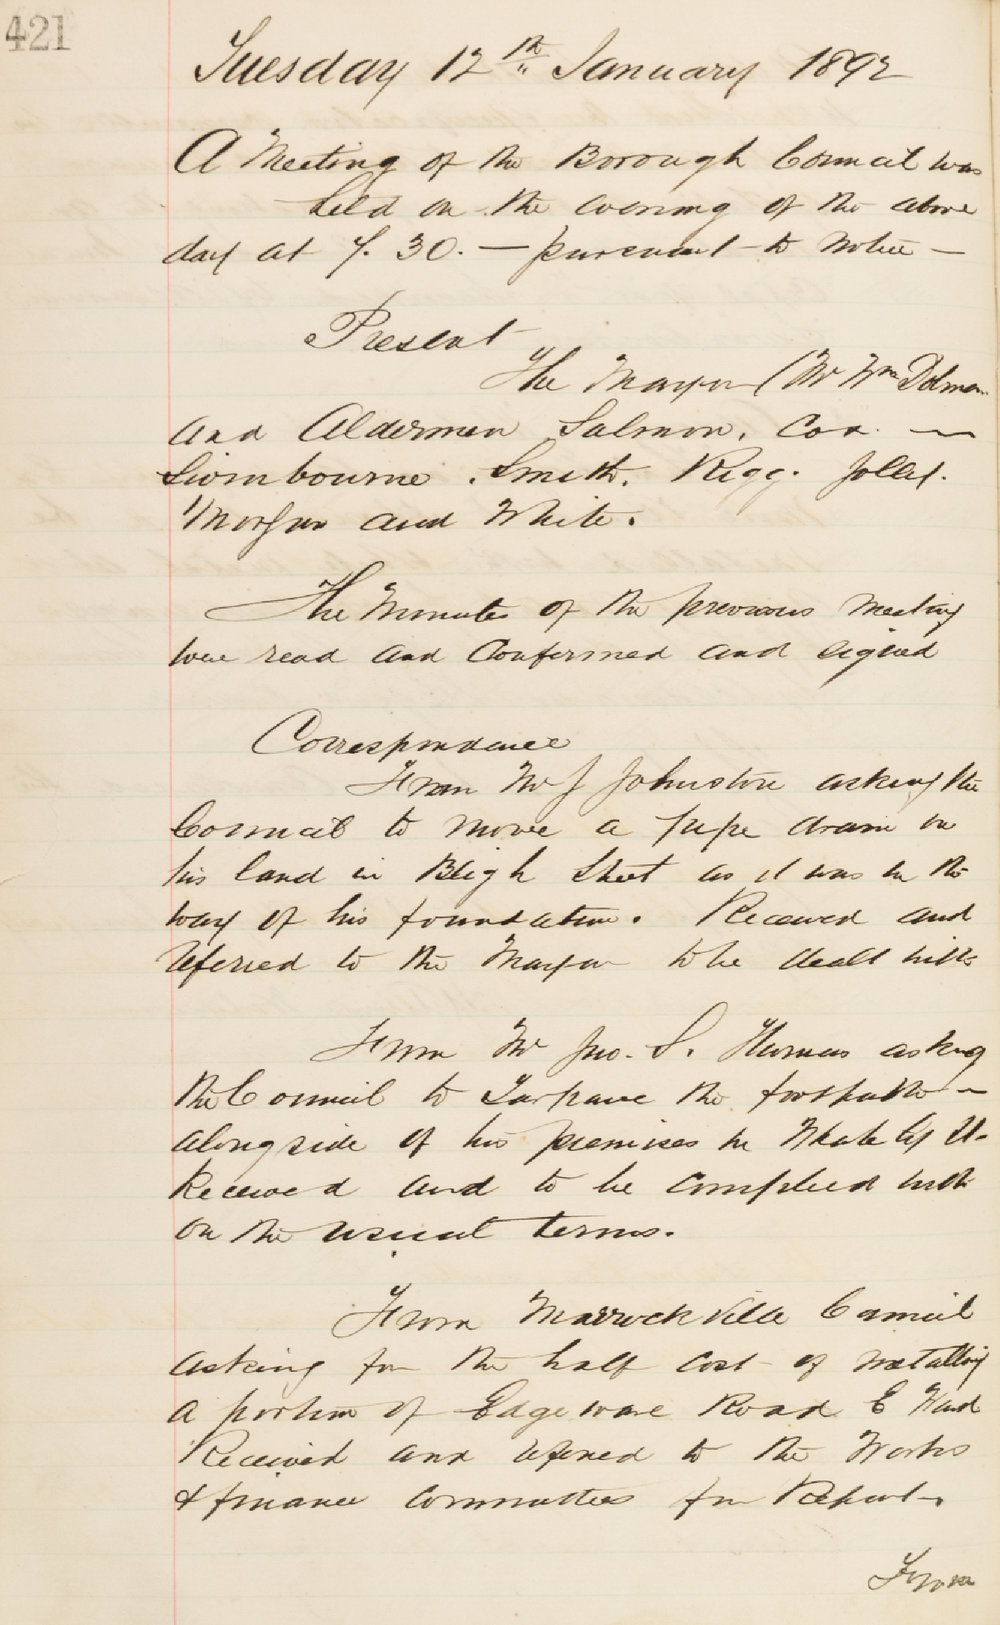 421
Tuesday 12th January 1892
A Meeting of the Borough Council was
held on the evening of the above
day at 7.30. — pursuant to notice —
Present
The Mayor (Mr Wm Dolman
and Aldermen Salmon, Cox —
Swinbourne. Smith. Rigg. Jolly.
Morgan and White.
The Minutes of the previous meeting
were read and Confirmed and signed
Correspondence
From Mr J Johnston asking the
Council to move a pipe drain on
his land in Bligh Street as it was in the
way of his foundation. Received and
referred to the Mayor to be dealt with
From Mr Jno. S. Thomas asking
the Council to Tarpave the footpath —
alongside of his premises in St-
Received and to be complied with
on the usual terms.
From Marrickville Council
asking for the half cost of metalling
a portion of Edgeware Road E Ward
Received and refered to the Works
& finance Committees for Report.
From